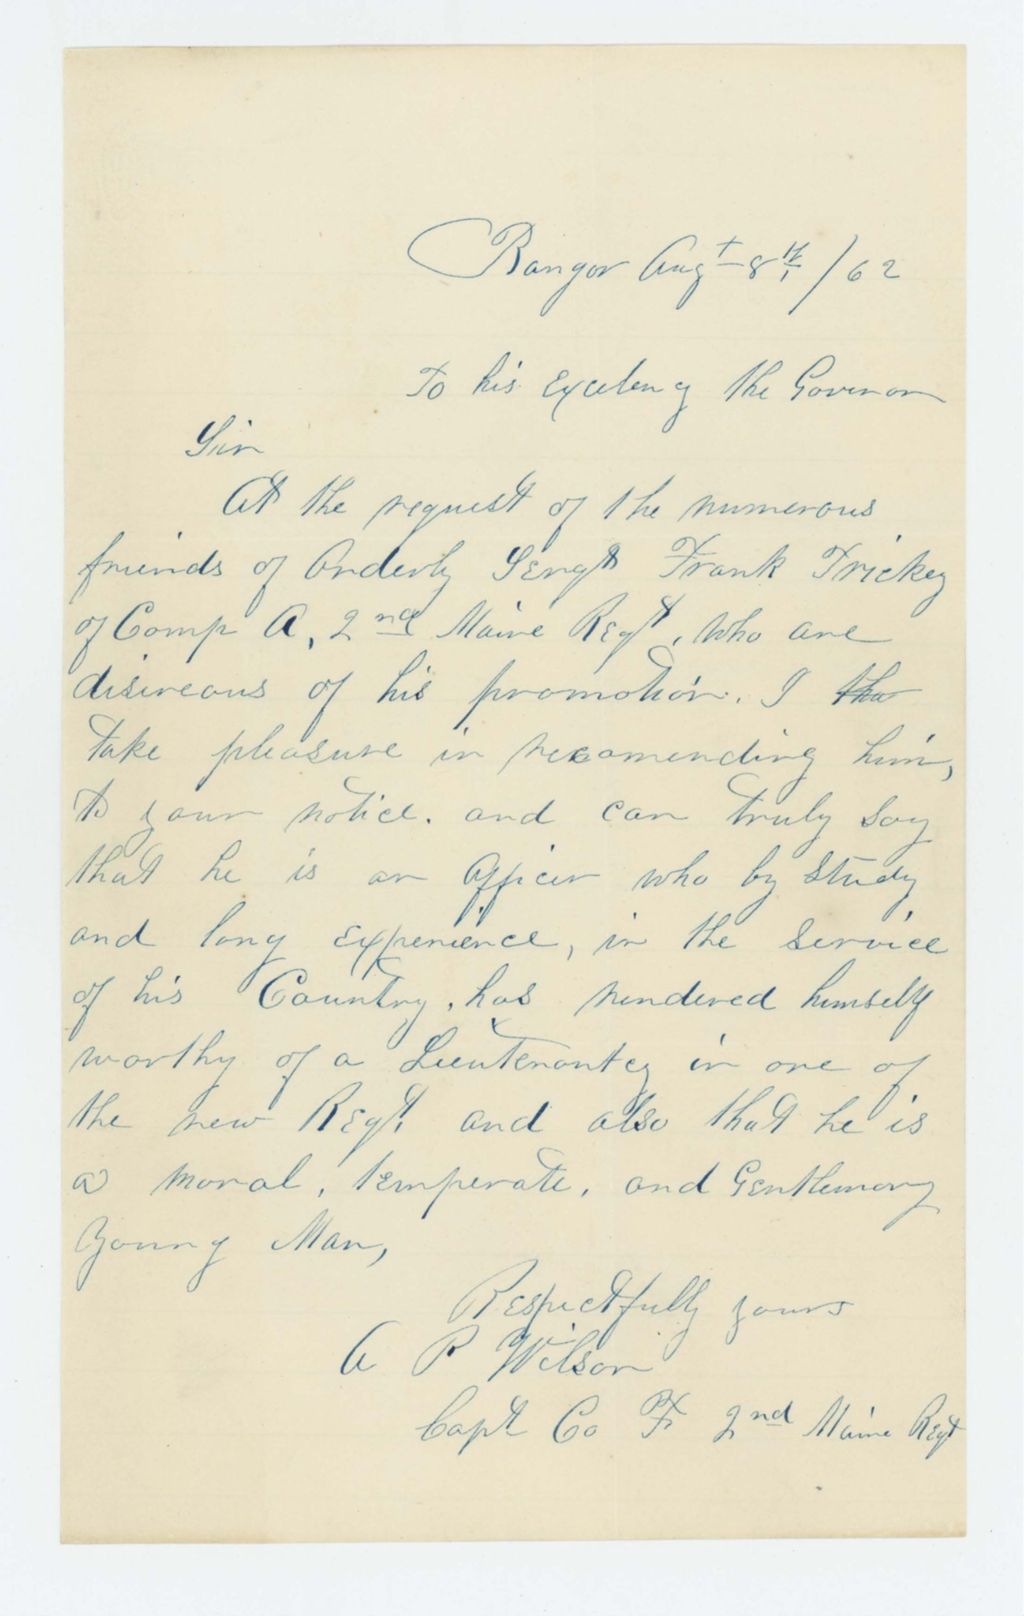 Bangor Augt 8th /62
To his Excelency the Govenor
Sir
At the request of the numerous
friends of Orderly Sergt Frank Trickey
of Comp A, 2nd Maine Regt, who are
disireous of his promotion. I tha
take pleasure in recomending him,
to your notice. and can truly say
that he is an officer who by study
and long experience, in the service
of his Country, has rendered himself
worthy of a Lieutenantcy in one of
the new Regt. and also that he is
a moral, temperate, and Gentlemany
young Man,
Respectfully yours
A P Wilson
Capt Co F 2nd Maine Regt